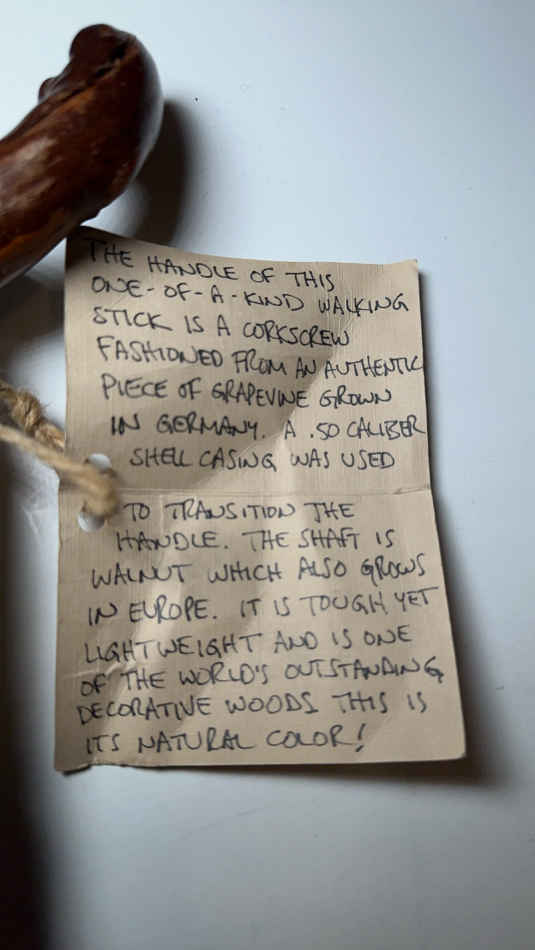 THE HANDLE OF THIS
ONE-OF-A-KIND WALKING
STICK IS A CORKSCREW
FASHIONED FROM AN AUTHENTIC
PIECE OF GRAPEVINE GROWN
IN GERMANY. A .50 CALIBER
SHELL CASING WAS USED
TO TRANSITION THE
HANDLE. THE SHAFT IS
WALNUT WHICH ALSO GROWS
IN EUROPE. IT IS TOUGH, YET
LIGHTWEIGHT AND IS ONE
OF THE WORLD'S OUTSTANDING
DECORATIVE WOODS. THIS IS
ITS NATURAL COLOR!